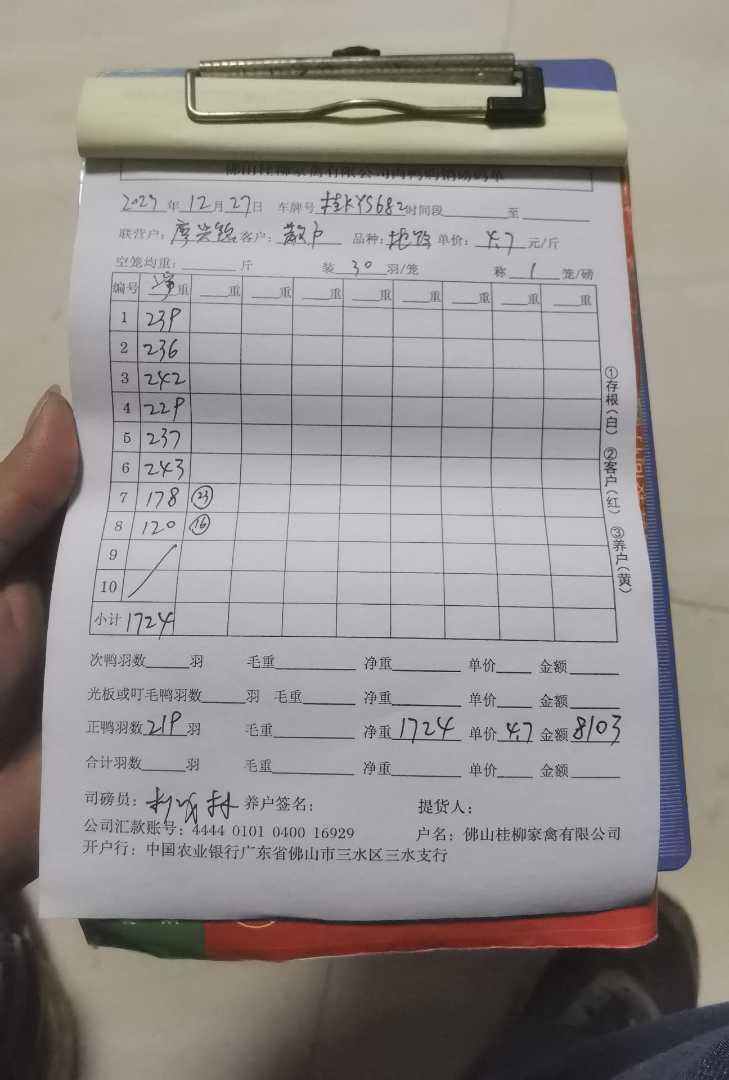 佛山桂柳家禽有限公司肉鸭购销磅码单
年12月27日 车牌号桂KYS682时间段 至
联营户: 客户:散户 品种: 单价:4.7元/斤
空笼均重: 斤 装30羽/笼 称1笼/磅
编号 净重 重 重 重 重 重 重 重 重
1 239
2 236
3 242
4 229
5 237
6 243
7 178 23
8 120 16
9
10
小计 1724
①存根(白) ②客户(红) ③养户(黄)
次鸭羽数 羽 毛重 净重 单价 金额
光板或叮毛鸭羽数 羽 毛重 净重 单价 金额
正鸭羽数219羽 毛重 净重1724单价4.7金额8103
合计羽数 羽 毛重 净重 单价 金额
司磅员: 养户签名: 提货人:
公司汇款账号:4444 0101 0400 16929 户名:佛山桂柳家禽有限公司
开户行:中国农业银行广东省佛山市三水区三水支行